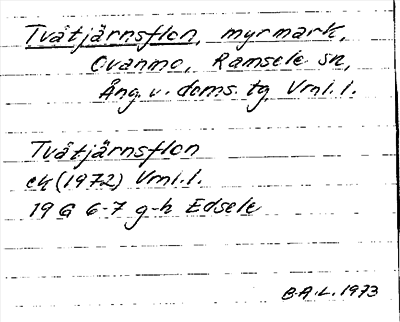 Tvåtjärnsflon, myrmark,
Ovanmo, Ramsele sn,
Ång. v. doms. tg, Vrnl. l.
Tvåtjärnsflon
ek (1972) Vrnl. l.
19 G 6-7 g-h Edsele
B.A.L. 1973